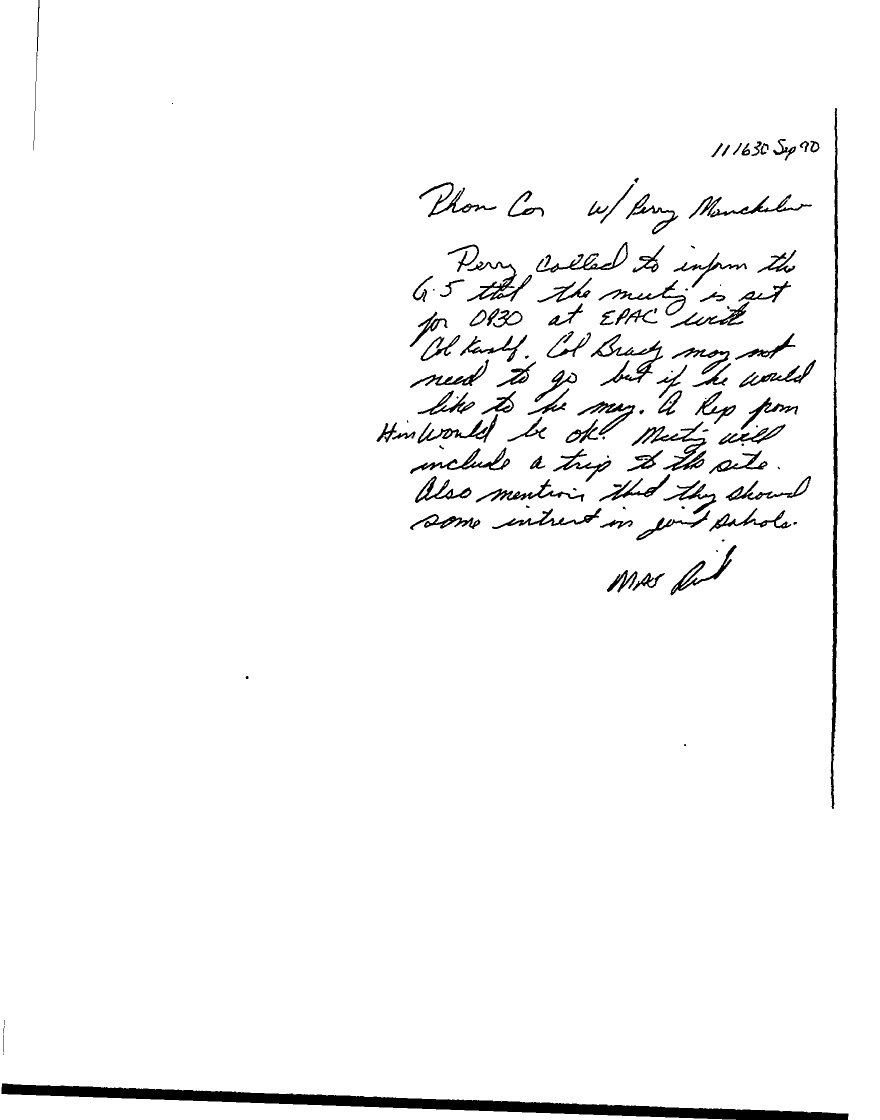 111630 Sep 90
Phon Con w/ Perry
Perry called to inform the
G-5 that the meeting is set
for 0930 at EPAC with
Col Col Brady may not
need to go but if he would
like to he may. A Rep from
Him would be ok. Meeting will
include a trip to the site.
Also mention that they showed
some intrest in joint patrols.
MAJ